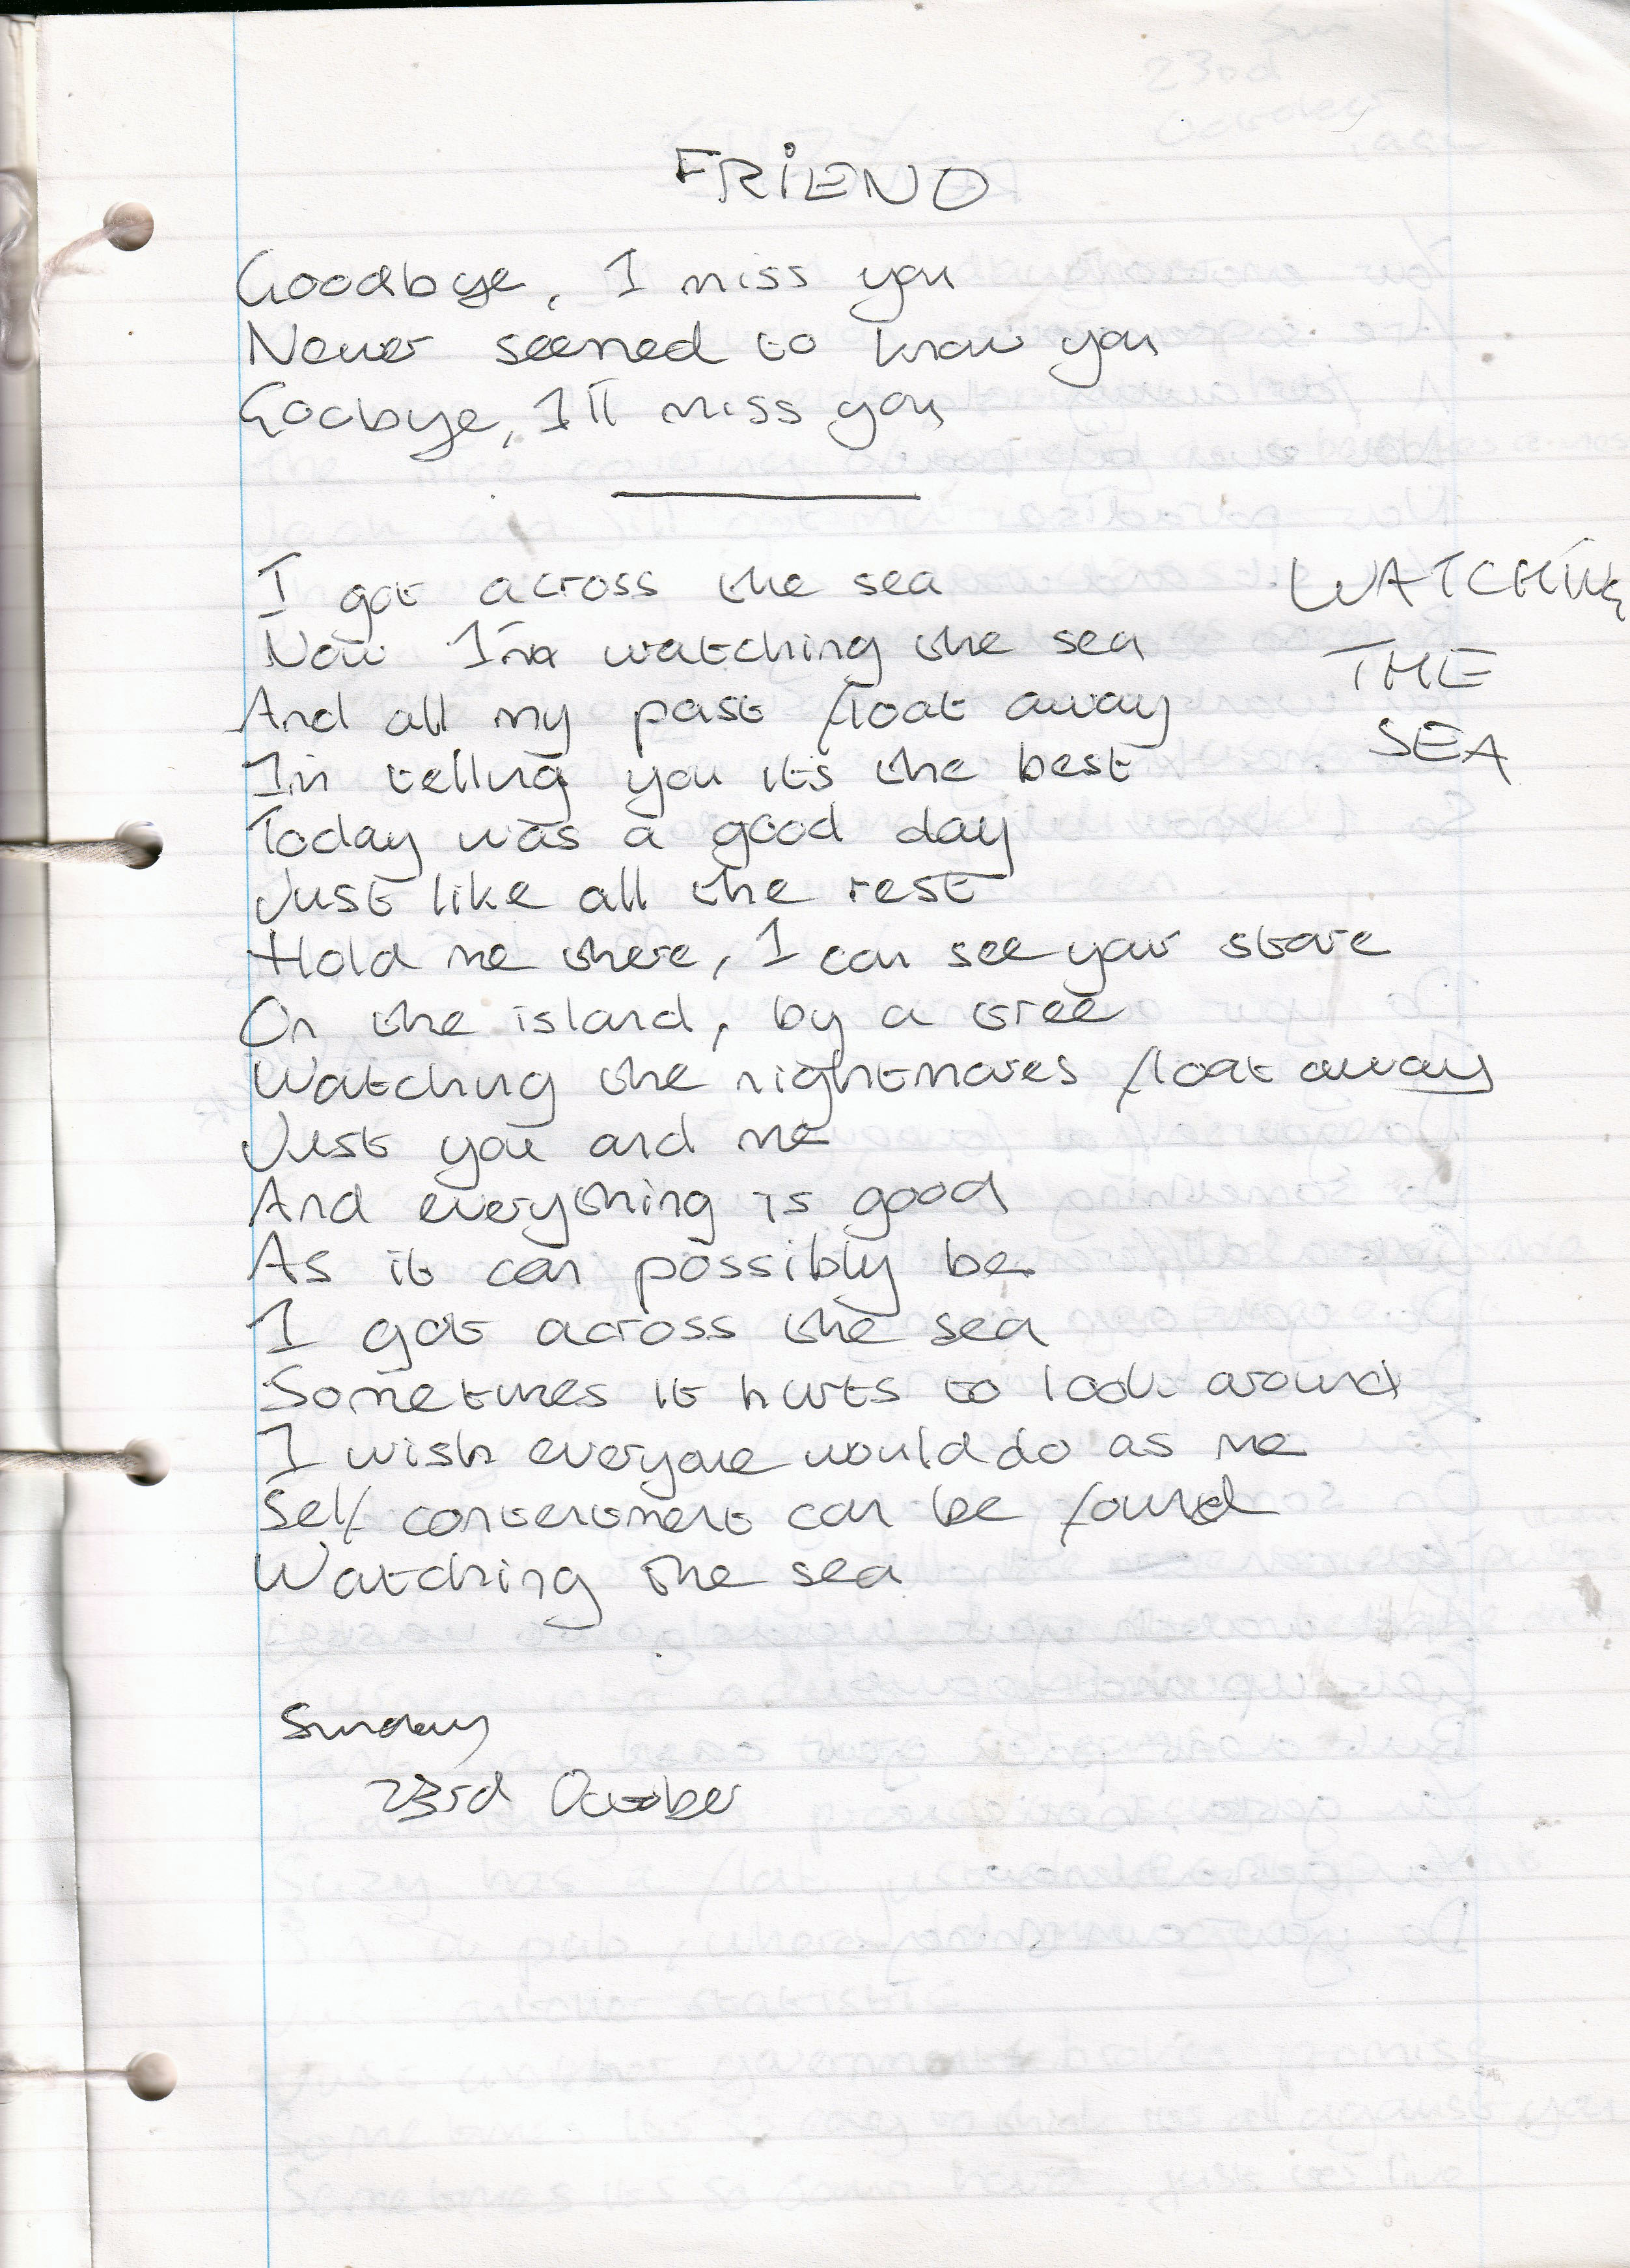 FRIEND
Goodbye, I miss you
Never seemed to know you
Goobye, I'll miss you
I got across the sea
Now I'm watching the sea
And all my past float away
I'm telling you its the best
Today was a good day
Just like all the rest
Hold me there, I can see your stare
On the island, by a tree
Watching the nightmares float away
Just you and me
And everything is good
As it can possibly be
I got across the sea
Sometimes it hurts to look around
I wish everyone would do as me
Self contentment can be found
Watching the sea
WATCHING
THE
SEA
Sunday
23rd October